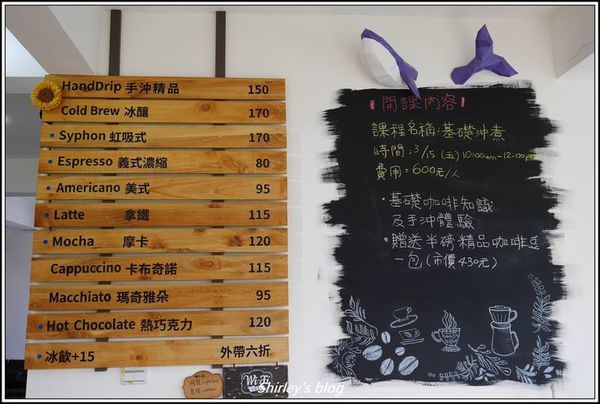 HandDrip 手沖精品 150
Cold Brew 冰釀 170
Syphon 虹吸式 170
Espresso 義式濃縮 80
Americano 美式 95
Latte 拿鐵 115
Mocha 摩卡 120
Cappuccino 卡布奇諾 115
Macchiato 瑪奇雅朵 95
Hot Chocolate 熱巧克力 120
冰飲+15 外帶六折
開課內容
課程名稱:基礎沖煮
時間:3/15 (五) 10:00am-12:00pm
費用:600元/人
・基礎咖啡知識
及手沖體驗
・贈送半磅精品咖啡豆
一包(市價430元)
Wi-Fi
Shirley's blog